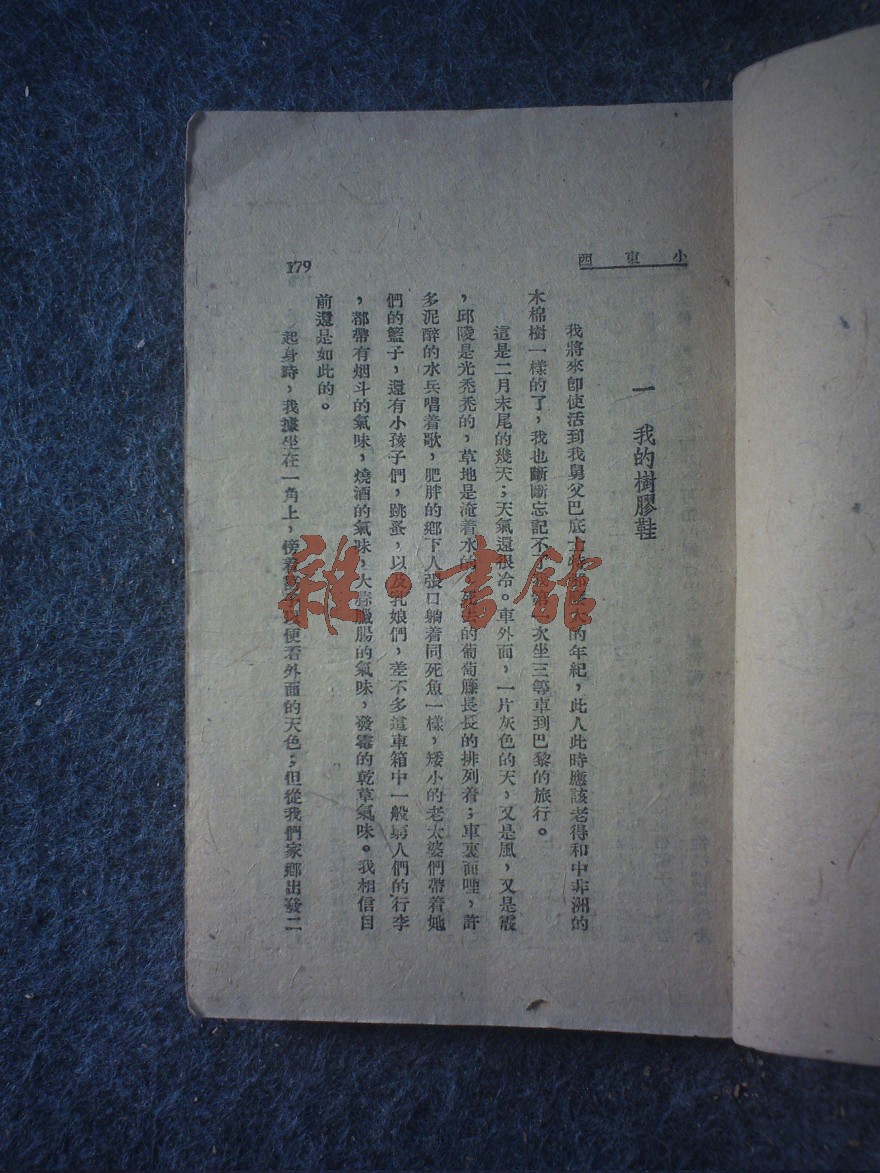 小東西
179
一　我的樹膠鞋
我將來卽使活到我舅父巴底士的年紀，此人此時應該老得和中非洲的
木棉樹一樣的了，我也斷斷忘記不了我第一次坐三等車到巴黎的旅行。
這是二月末尾的幾天；天氣還很冷。車外面，一片灰色的天，又是風，又是霰
，邱陵是光禿禿的，草地是淹着水的，死去的葡萄籐長長的排列着；車裏面哩，許
多泥醉的水兵唱着歌，肥胖的鄉下人張口躺着同死魚一樣，矮小的老太婆們帶着她
們的籃子，還有小孩子們，跳蚤，以及乳娘們，差不多這車箱中一般窮人們的行李
，都帶有烟斗的氣味，燒酒的氣味，大蒜臘腸的氣味，發霉的乾草氣味。我相信目
前還是如此的。
起身時，我據坐在一角上，傍着以便看外面的天色；但從我們家鄉出發二
雜·書館